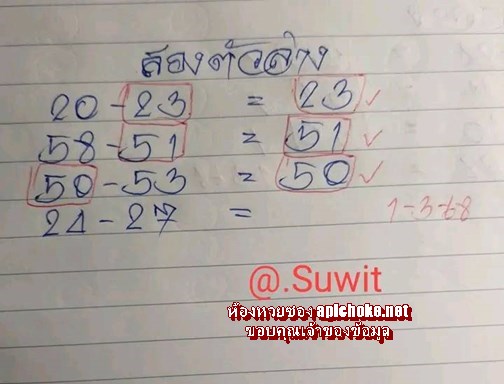 สองตัวล่าง
20 - 23 = 23 ✓
58 - 51 = 51 ✓
50 - 53 = 50 ✓
24 - 27 =
1-3-6-8
@.Suwit
ห้องหวยซอง apichoke.net
ขอบคุณเจ้าของข้อมูล